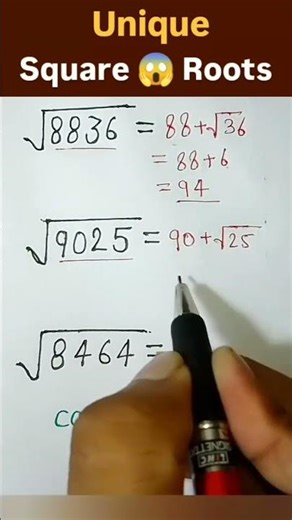 Unique
Square 😱 Roots
√8836 = 88+√36
= 88+6
= 94
√9025 = 90+√25
√8464 =